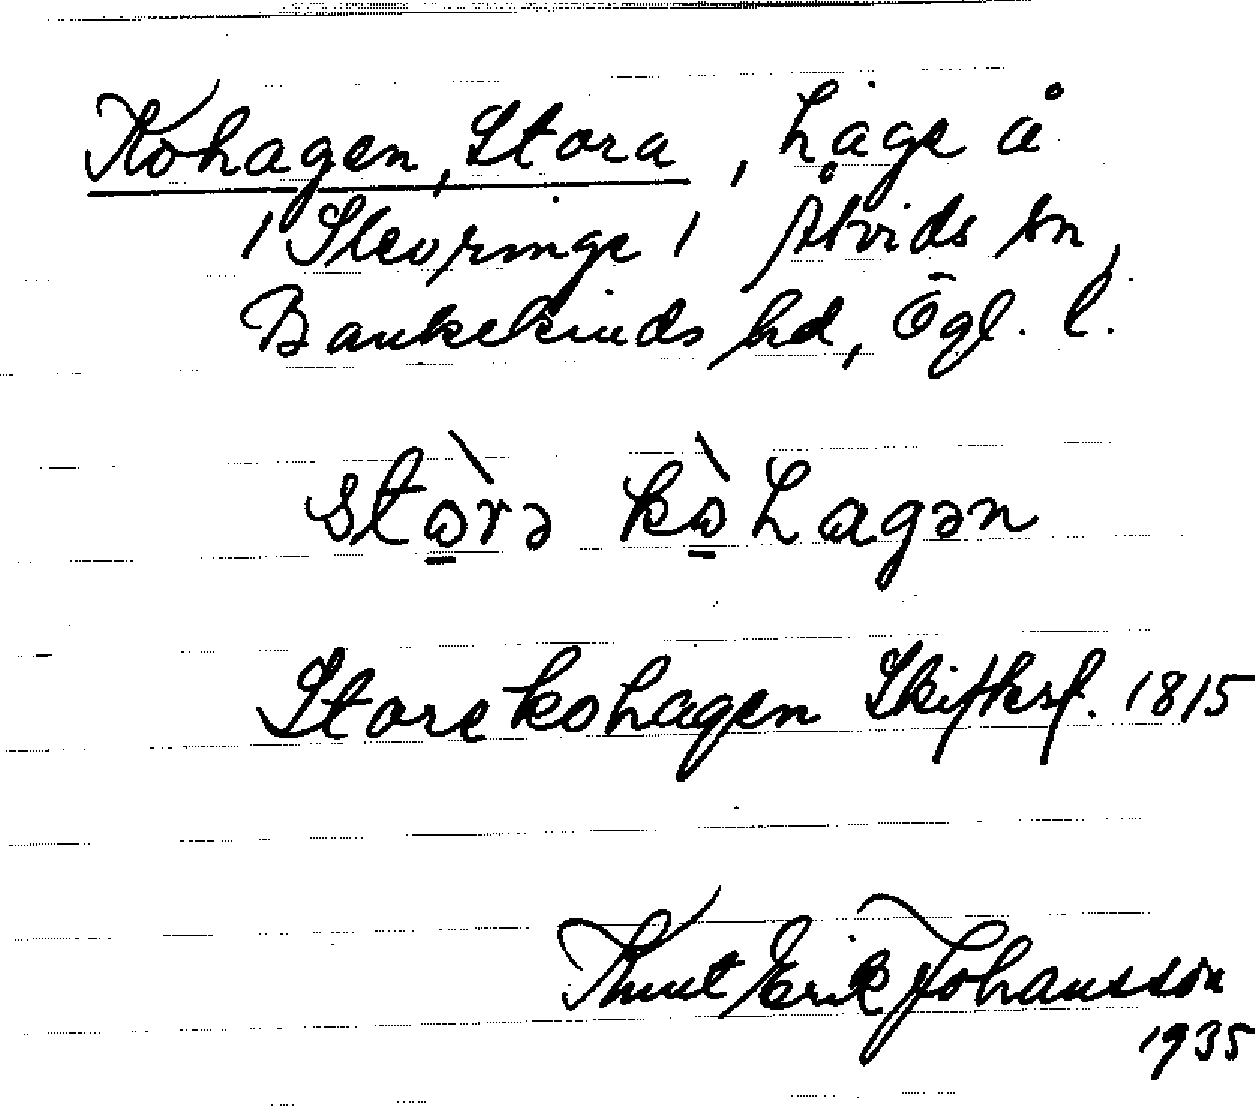 Kohagen, Stora, hage å
/Slevringe/ Åtvids sn,
Bankekinds hd, Ögl. l.
stò̱rə kò̱hagən
Storekohagen Skifksf. 1815
Knut Erik Johansson
1935